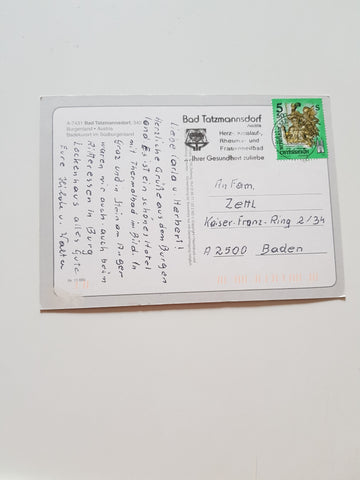 A-7431 Bad Tatzmannsdorf
Burgenland • Austria
Badekurort im Südburgenland
Liebe Carla u. Herbert!
Herzliche Grüße aus dem Burgen
land. Es ist ein schönes Hotel
mit Thermalbad im Bild. In
Graz und Stein am Anger
waren wir auch auch beim
Ritteressen in Burg
Lockenhaus alles Gute
Eure Hilde u. Walter
Bad Tatzmannsdorf
Austria
Herz-, Kreislauf-,
Rheuma- und
Frauenheilbad
Ihrer Gesundheit zuliebe
5 S
An Fam.
Zettl
Kaiser-Franz-Ring 2/34
A 2500 Baden